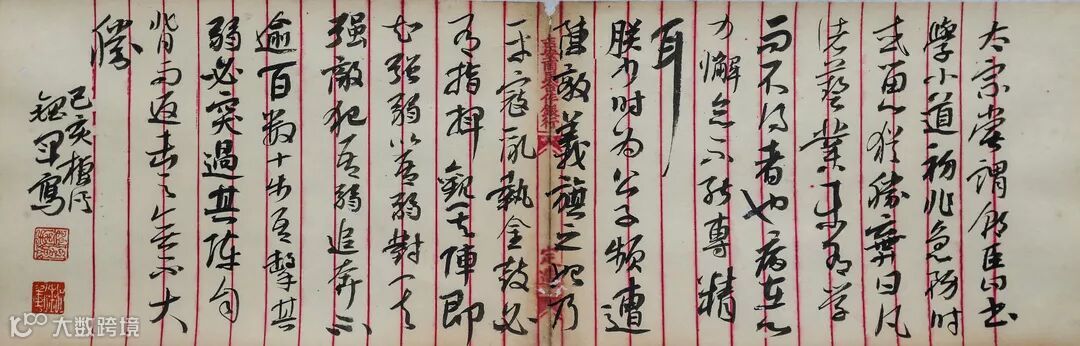 太宗嘗謂朝臣曰書
學小道初非急務時
或留心猶勝棄日凡
诸藝業未有學
而不得者也病在心
力懈怠不能專精
耳
朕少时為公子頻遭
陣敵義旗之始乃
平寇亂執金鼓必
有指揮觀其陣即
知強弱以吾弱對其
强敵犯吾弱追奔不
逾百數十步吾擊其
弱必突過其陣自
背而返击之無不大
勝
己亥
寫
大数跨境